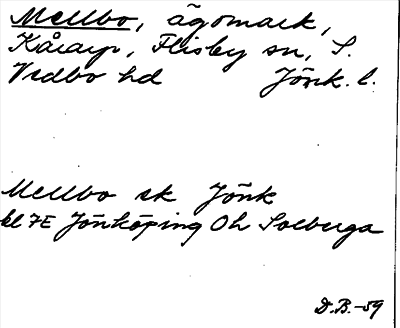 Mellbo, ägomark,
Kåarp, Flisby sn, S.
Vedbo hd Jönk. l.
Mellbo ek Jönk
bl 7E Jönköping Oh Solberga
D.B.-59